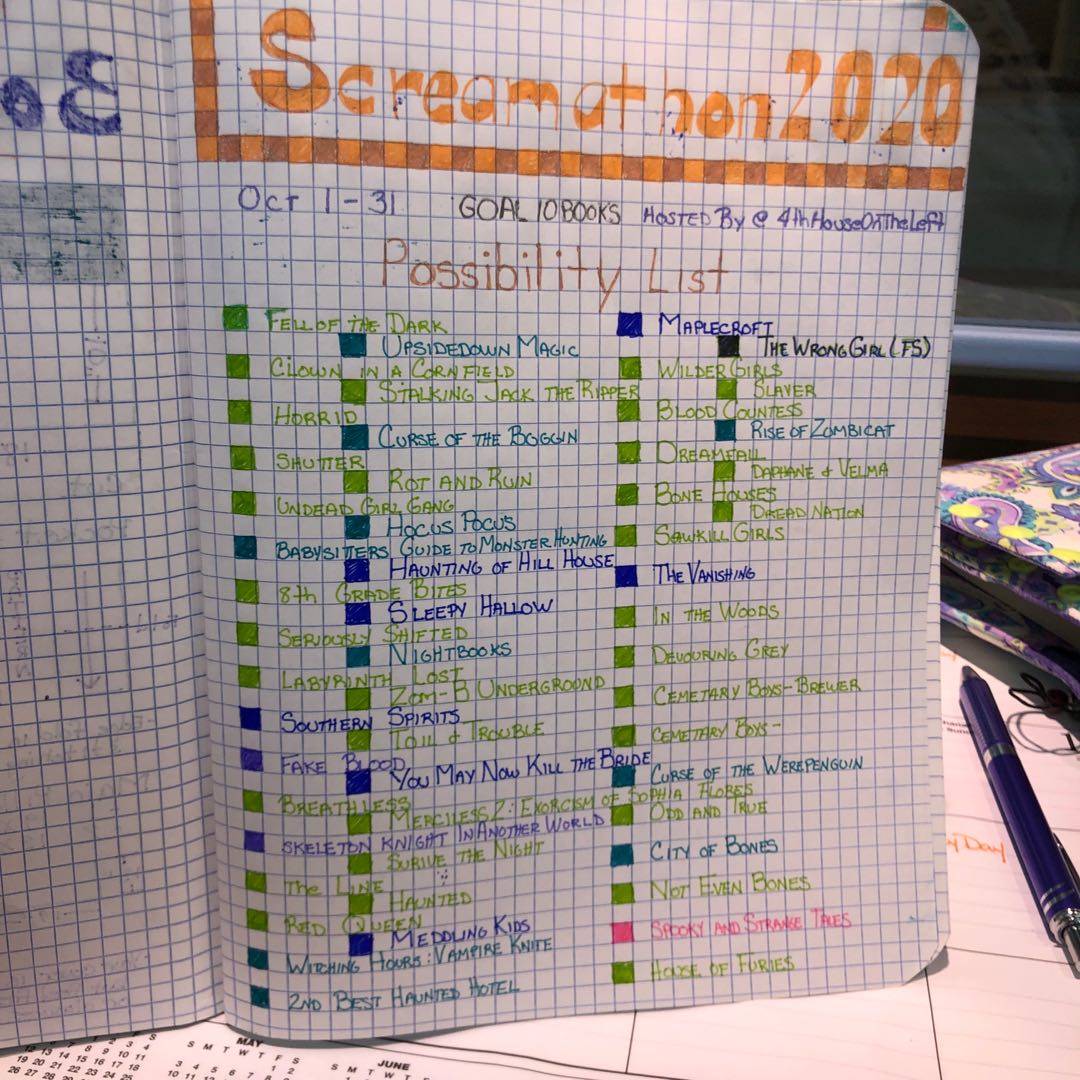 Screamathon 2020
Oct 1-31 GOAL 10 BOOKS HOSTED By @ 4thHouseOnTheLeft
Possibility List
FELL OF THE DARK
UPSIDEDOWN MAGIC
CLOWN IN A CORNFIELD
STALKING JACK THE RIPPER
HORRID
CURSE OF THE BOGGIN
SHUTTER
ROT AND RUIN
UNDEAD GIRL GANG
HOCUS POCUS
BABYSITTERS GUIDE TO MONSTER HUNTING
HAUNTING OF HILL HOUSE
8th GRADE BITES
SLEEPY HALLOW
SERIOUSLY SHIFTED
NIGHTBOOKS
LABYRINTH LOST
ZOM-B UNDERGROUND
SOUTHERN SPIRITS
TOIL & TROUBLE
FAKE BLOOD
YOU MAY NOW KILL THE BRIDE
BREATHLESS
MERCILESS 2: EXORCISM OF SOPHIA FLORES
SKELETON KNIGHT IN ANOTHER WORLD
SURIVE THE NIGHT
The LINE
HAUNTED
RED QUEEN
MEDDLING KIDS
WITCHING HOURS: VAMPIRE KNITE
2ND BEST HAUNTED HOTEL
MAPLECROFT
THE WRONG GIRL (FS)
WILDER GIRLS
SLAYER
BLOOD COUNTESS
RISE OF ZOMBICAT
DREAMFALL
DAPHANE & VELMA
BONE HOUSES
DREAD NATION
SAWKILL GIRLS
THE VANISHING
IN THE WOODS
DEVOURING GREY
CEMETARY BOYS-BREWER
CEMETARY BOYS-
CURSE OF THE WEREPENGUIN
ODD AND TRUE
CITY OF BONES
NOT EVEN BONES
SPOOKY AND STRANGE TALES
HOUSE OF FURIES
Day
MAY
S M T W T F S
JUNE
S M T W T F S